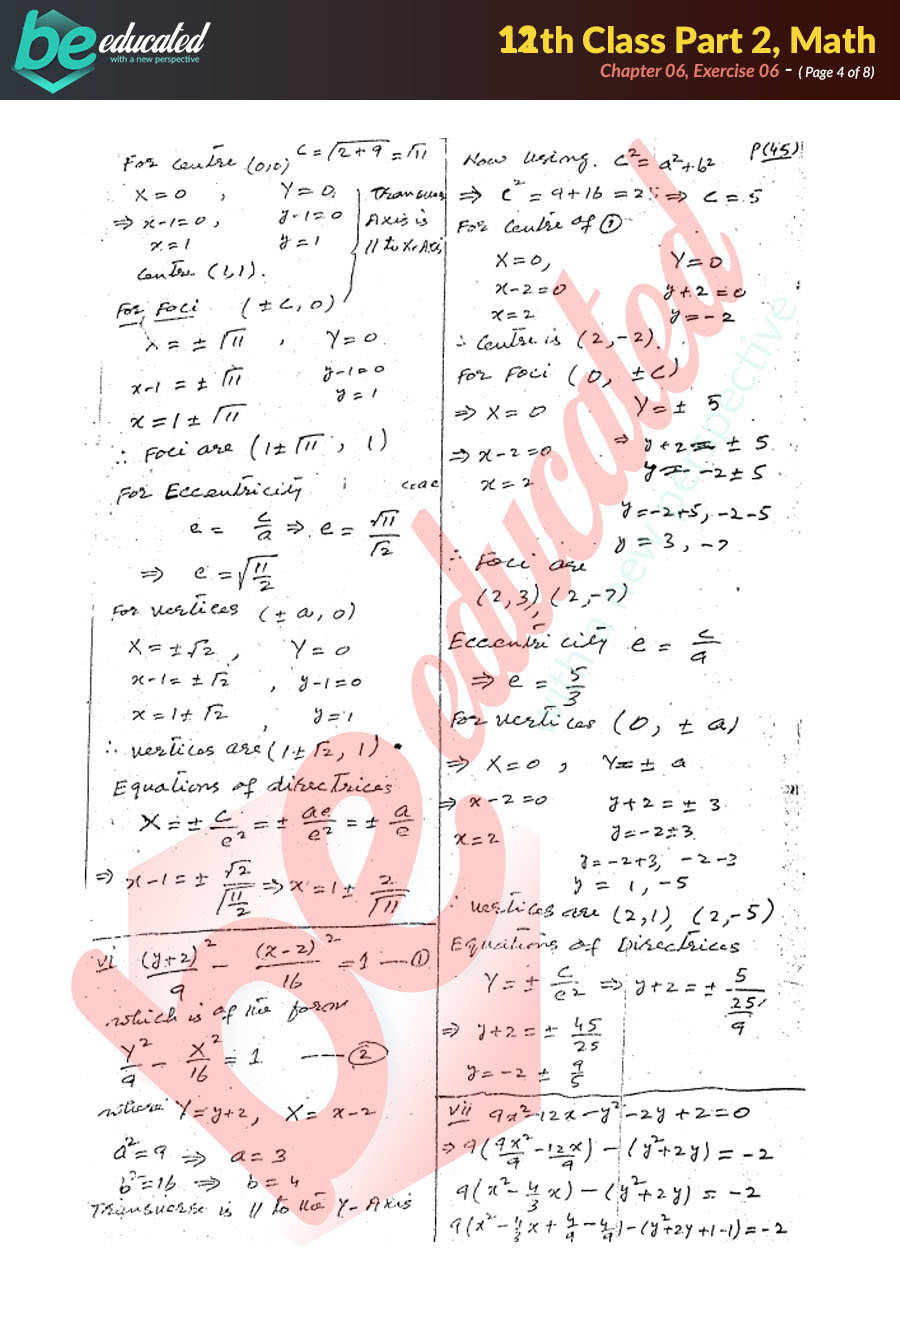 be educated
with a new perspective
12th Class Part 2, Math
Chapter 06, Exercise 06 - ( Page 4 of 8)
For Centre (0,0) C = √(2+9) = √11
X = 0 , Y = 0
⇒ x-1=0 , y-1=0
x = 1 y = 1
Centre (1,1).
Transverse
Axis is
// to X-Axis
For Foci (±c, 0)
X = ±√11 , Y = 0
x-1 = ±√11 y-1=0
x = 1±√11 y = 1
∴ Foci are (1±√11 , 1)
For Eccentricity
e = c/a ⇒ e = √11/√2
⇒ e = √(11/2)
For vertices (±a, 0)
X = ±√2 , Y = 0
x-1 = ±√2 , y-1=0
x = 1±√2 , y = 1
∴ vertices are (1±√2, 1)
Equations of directrices
X = ± c/e² = ± ae/e² = ± a/e
⇒ x-1 = ± √2/√(11/2) ⇒ x = 1 ± 2/√11
vi (y+2)²/9 - (x-2)²/16 = 1 — ①
which is of the form
Y²/9 - X²/16 = 1 — ②
where Y = y+2, X = x-2
a² = 9 ⇒ a = 3
b² = 16 ⇒ b = 4
Transverse is // to the Y-Axis
P(45)
Now using. c² = a²+b²
⇒ c² = 9+16 = 25 ⇒ c = 5
For Centre of ①
X = 0, Y = 0
x-2=0 y+2=0
x = 2 y = -2
∴ Centre is (2,-2).
For Foci (0, ±c)
⇒ X = 0 Y = ± 5
⇒ x-2=0 ⇒ y+2 = ± 5
x = 2 y = -2±5
y = -2+5, -2-5
y = 3, -7
∴ Foci are
(2,3) (2,-7)
Eccentricity e = c/a
⇒ e = 5/3
For vertices (0, ±a)
⇒ X = 0 , Y = ± a
⇒ x-2=0 y+2 = ± 3
x = 2 y = -2±3
y = -2+3, -2-3
y = 1, -5
∴ vertices are (2,1), (2,-5)
Equations of Directrices
Y = ± c/e² ⇒ y+2 = ± 5/(25/9)
⇒ y+2 = ± 45/25
y = -2 ± 9/5
vii 9x²-12x-y²-2y+2=0
⇒ 9(9x²/9 - 12x/9) - (y²+2y) = -2
9(x² - 4/3 x) - (y²+2y) = -2
9(x² - 4/3 x + 4/9 - 4/9) - (y²+2y+1-1) = -2
be educated
with a new perspective